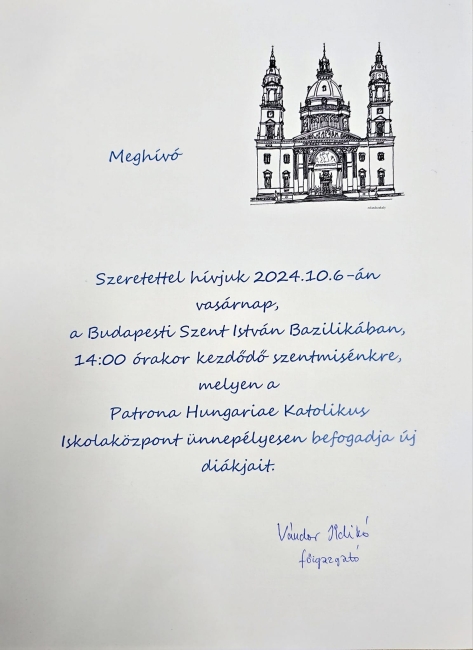 Meghívó
Szeretettel hívjuk 2024.10.6-án
vasárnap,
a Budapesti Szent István Bazilikában,
14:00 órakor kezdődő szentmisénkre,
melyen a
Patrona Hungariae Katolikus
Iskolaközpont ünnepélyesen befogadja új
diákjait.
Vándor Ildikó
főigazgató